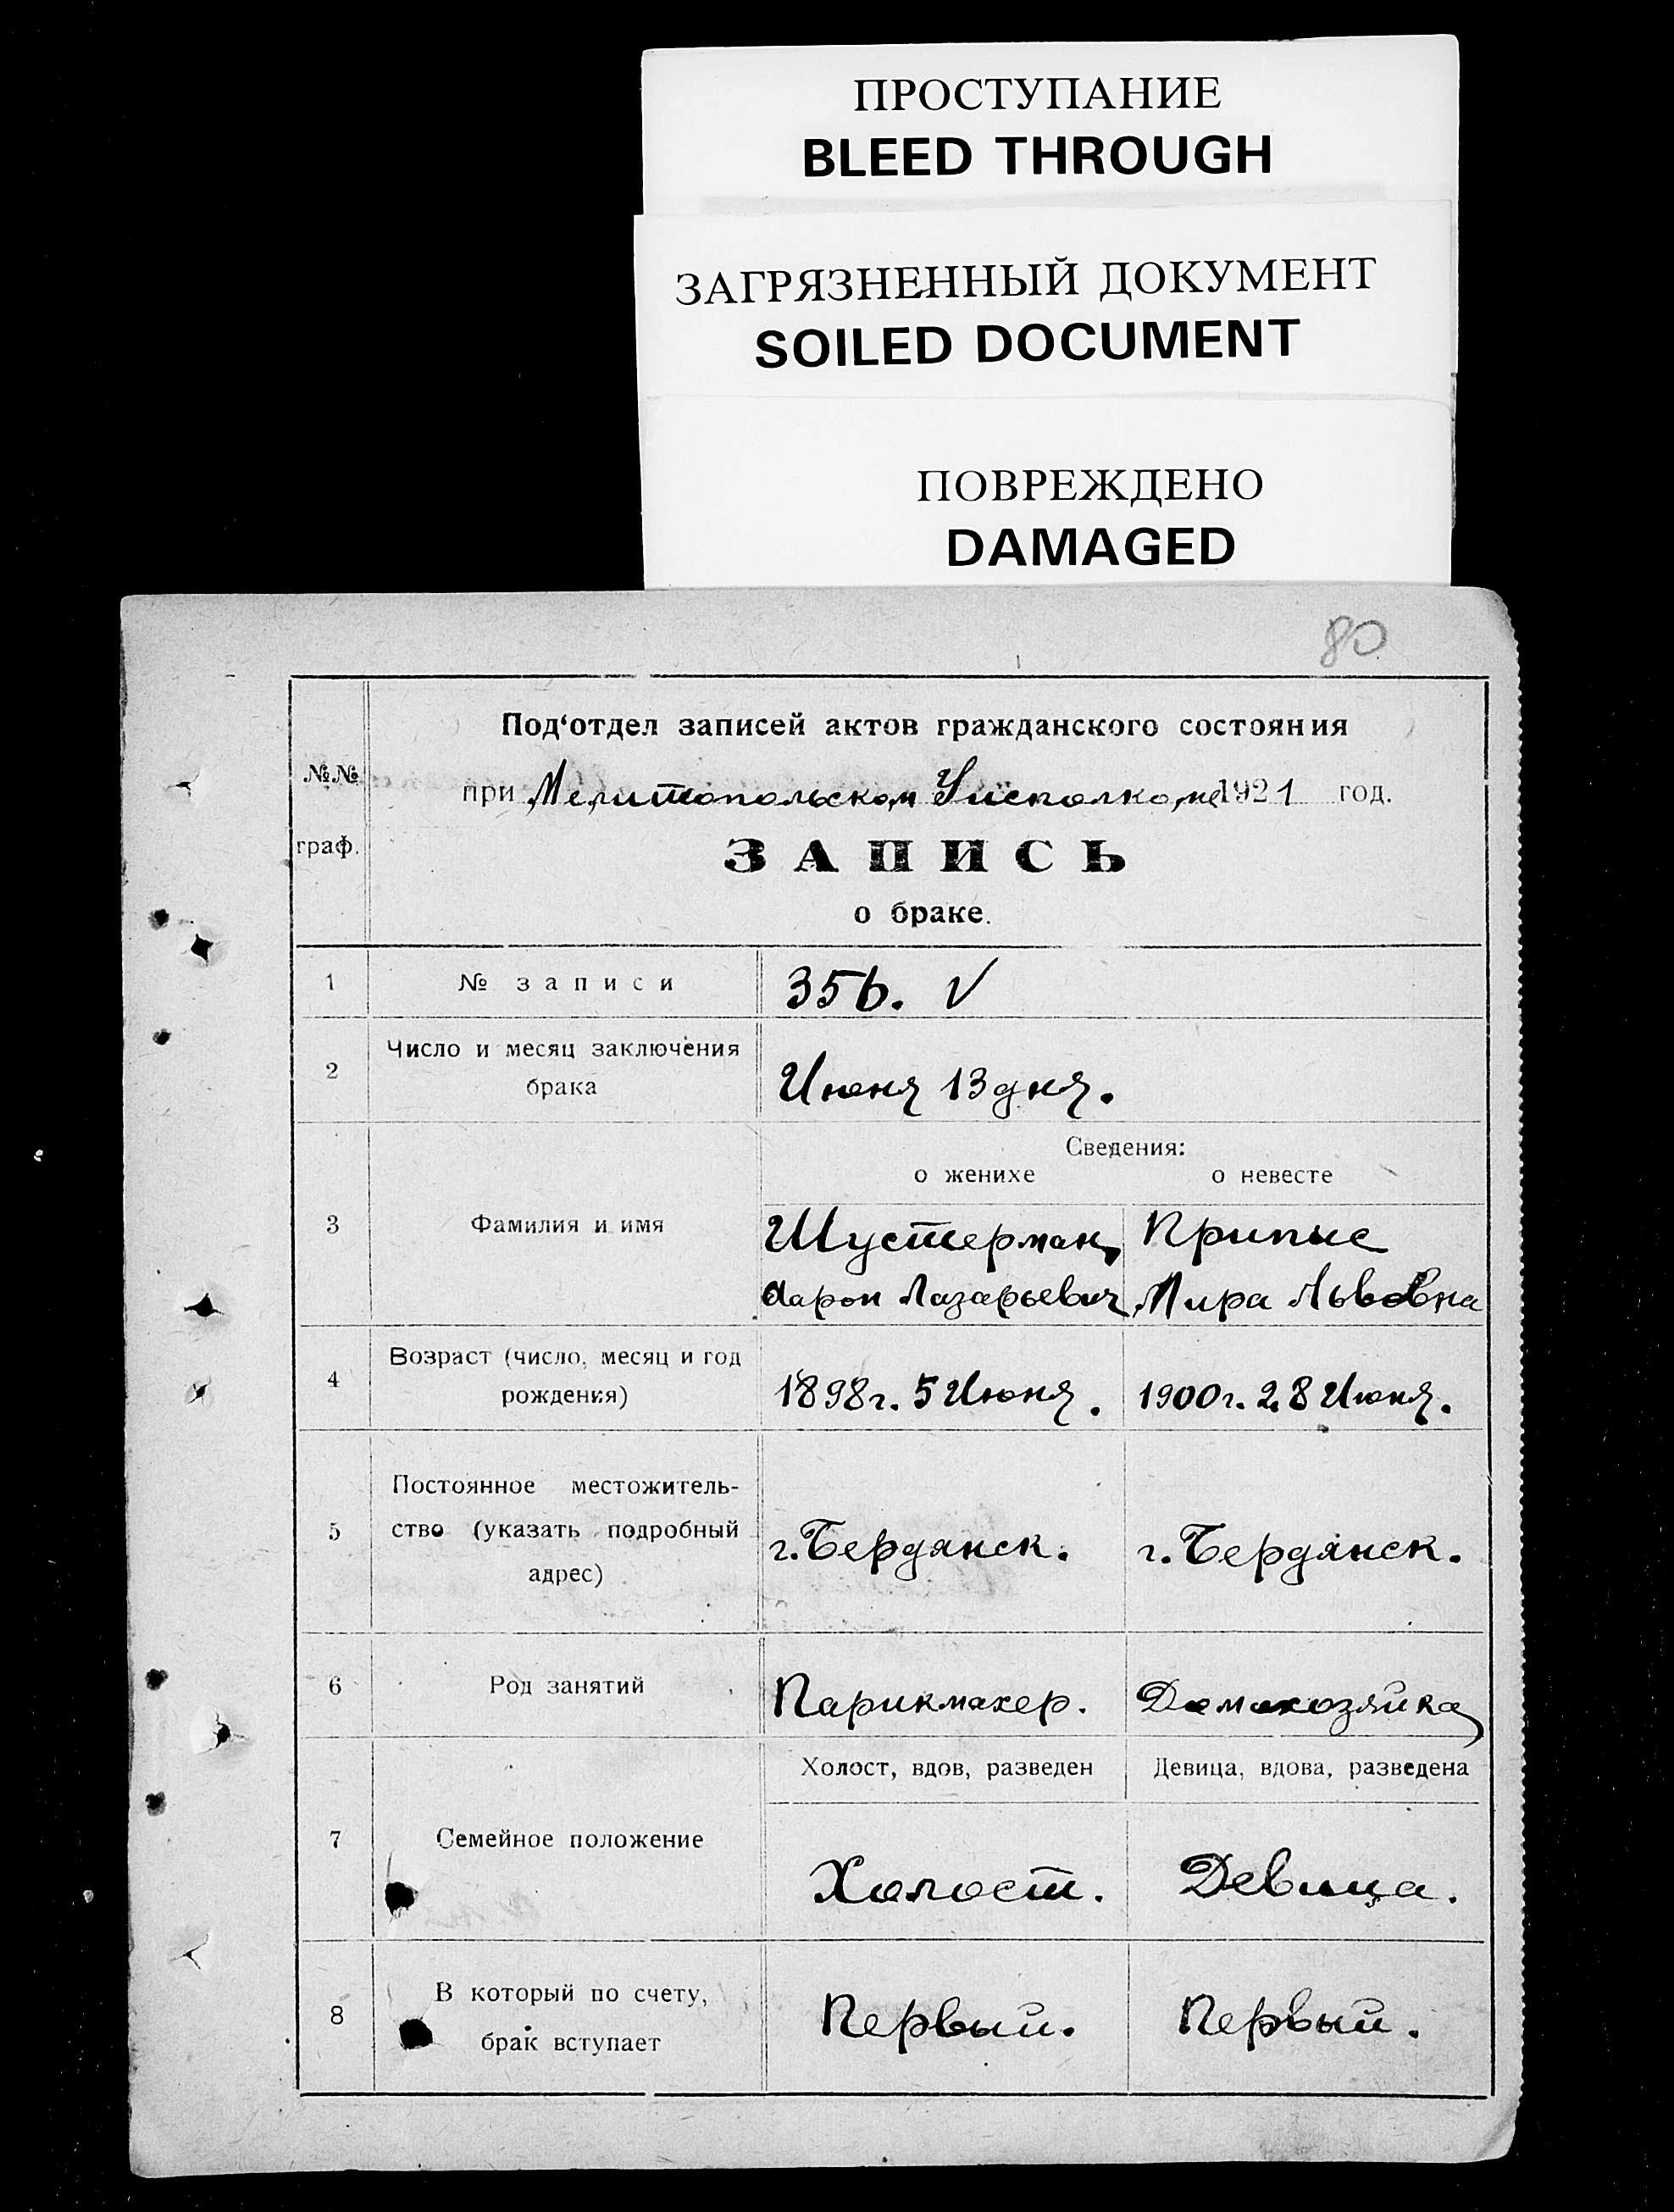 ПРОСТУПАНИЕ
BLEED THROUGH
ЗАГРЯЗНЕННЫЙ ДОКУМЕНТ
SOILED DOCUMENT
ПОВРЕЖДЕНО
DAMAGED
80
№№ граф.
Под‘отдел записей актов гражданского состояния
при Мелитопольском Уисполкоме 1921 год.
ЗАПИСЬ
о браке.
1 № записи 356. √
2 Число и месяц заключения
брака
Июня 13 дня.
Сведения:
о женихе о невесте
3 Фамилия и имя
Шустерман Припис
Аарон Лазарьевич Мира Львовна
4 Возраст (число, месяц и год
рождения)
1898 г. 5 Июня. 1900 г. 28 Июня.
5 Постоянное местожитель-
ство (указать подробный
адрес)
г. Бердянск. г. Бердянск.
6 Род занятий Парикмахер. Домохозяйка
Холост, вдов, разведен Девица, вдова, разведена
7 Семейное положение
Холост. Девица.
8 В который по счету,
брак вступает
Первый. Первый.